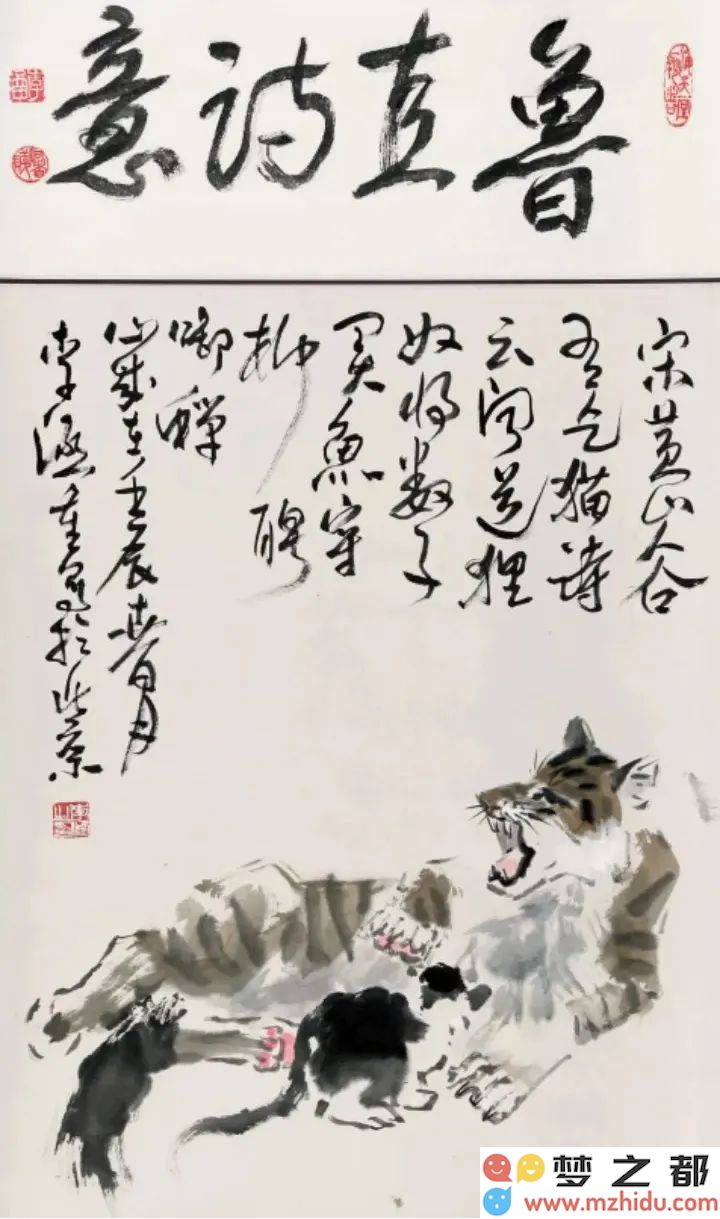 魯直诗意
宋黄山谷
有乞猫诗
云闻道狸
奴将数子
买鱼穿
柳聘
衔蝉
岁在壬辰春月
李涵写於北京
梦之都
www.mzhidu.com